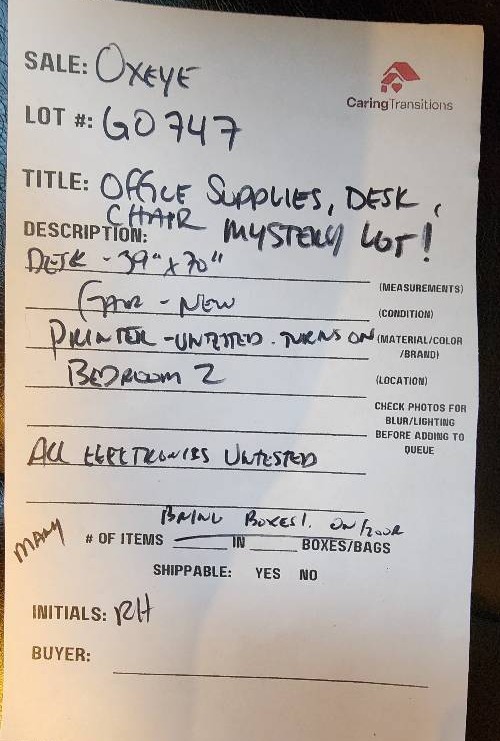 SALE: OXEYE
CaringTransitions
LOT #: GO747
TITLE: OFFICE SUPPLIES, DESK,
CHAIR MYSTERY LOT!
DESCRIPTION:
DESK - 39" x 70"
(MEASUREMENTS)
- NEW
(CONDITION)
PRINTER - UNTESTED. TURNS ON
(MATERIAL/COLOR
/BRAND)
BEDROOM 2
(LOCATION)
CHECK PHOTOS FOR
BLUR/LIGHTING
BEFORE ADDING TO
QUEUE
ALL ELECTRONICS UNTESTED
BRING BOXES!
MANY # OF ITEMS IN BOXES/BAGS
SHIPPABLE: YES NO
INITIALS: RH
BUYER: